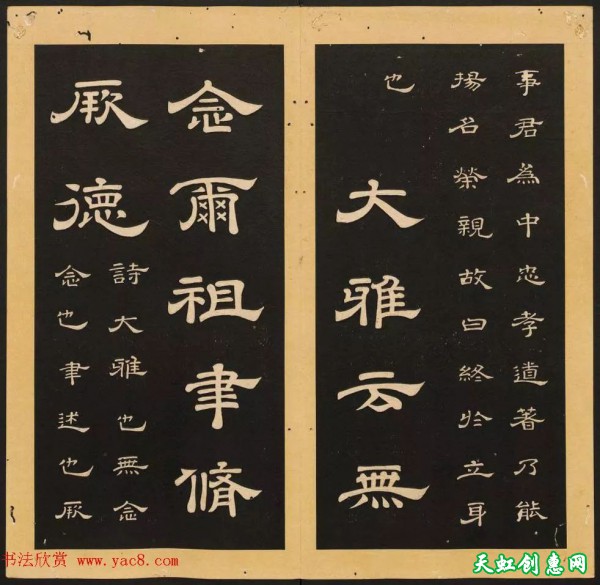 事君為中忠孝道著乃能
揚名榮親故曰終於立身
也
大雅云無
念爾祖聿脩
厥德
詩大雅也無念
念也聿述也厥
书法欣赏 www.yac8.com
天虹创惠网